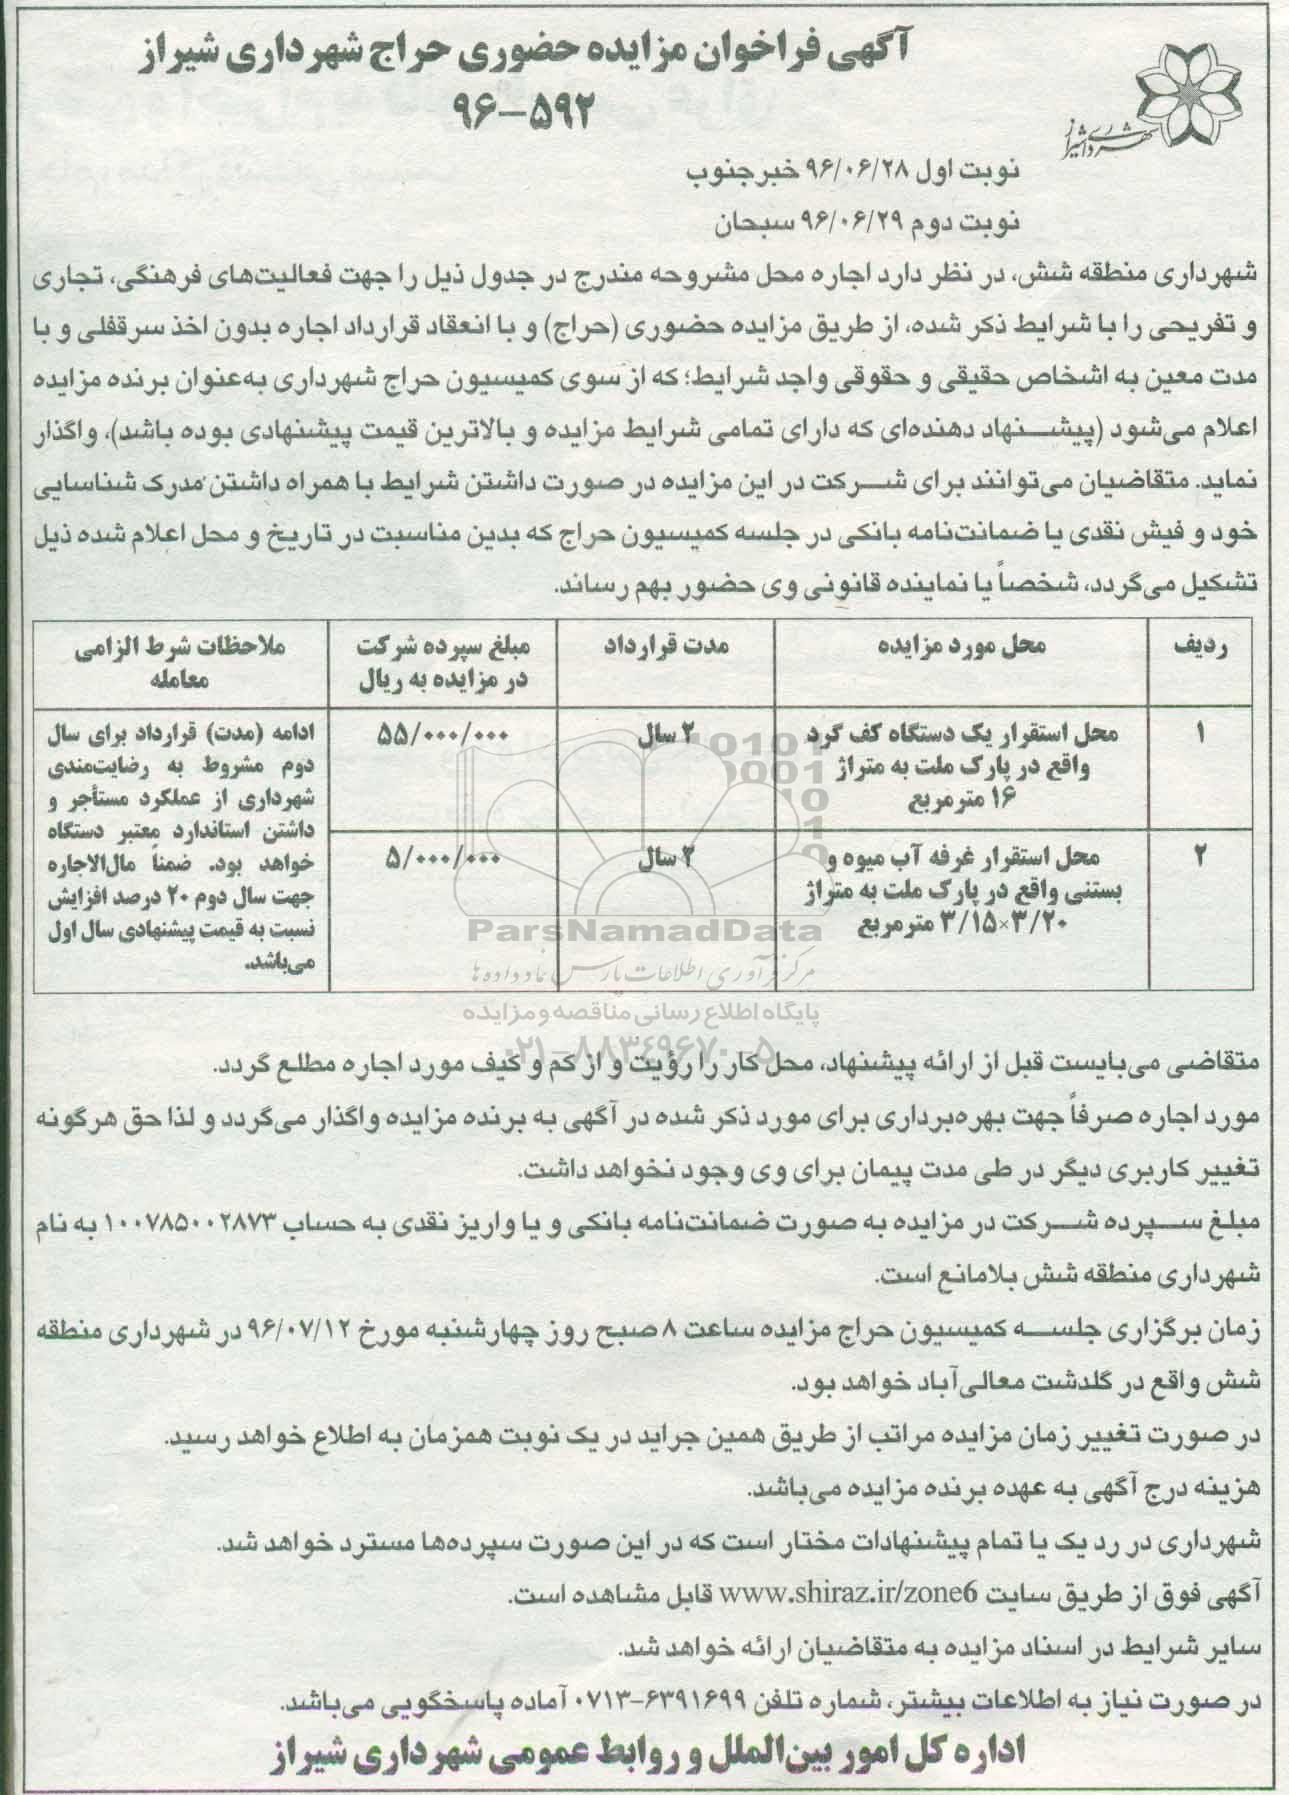 آگهی فراخوان مزایده حضوری حراج شهرداری شیراز
۹۶-۵۹۲
شهرداری شیراز
نوبت اول ۹۶/۰۶/۲۸ خبرجنوب
نوبت دوم ۹۶/۰۶/۲۹ سبحان
شهرداری منطقه شش، در نظر دارد اجاره محل مشروحه مندرج در جدول ذیل را جهت فعالیت‌های فرهنگی، تجاری
و تفریحی را با شرایط ذکر شده، از طریق مزایده حضوری (حراج) و با انعقاد قرارداد اجاره بدون اخذ سرقفلی و با
مدت معین به اشخاص حقیقی و حقوقی واجد شرایط؛ که از سوی کمیسیون حراج شهرداری به‌عنوان برنده مزایده
اعلام می‌شود (پیشنهاد دهنده‌ای که دارای تمامی شرایط مزایده و بالاترین قیمت پیشنهادی بوده باشد)، واگذار
نماید. متقاضیان می‌توانند برای شرکت در این مزایده در صورت داشتن شرایط با همراه داشتن مدرک شناسایی
خود و فیش نقدی یا ضمانت‌نامه بانکی در جلسه کمیسیون حراج که بدین مناسبت در تاریخ و محل اعلام شده ذیل
تشکیل می‌گردد، شخصاً یا نماینده قانونی وی حضور بهم رساند.
ردیف
محل مورد مزایده
مدت قرارداد
مبلغ سپرده شرکت
در مزایده به ریال
ملاحظات شرط الزامی
معامله
۱
محل استقرار یک دستگاه کف گرد
واقع در پارک ملت به متراژ
۱۶ مترمربع
۲ سال
۵۵/۰۰۰/۰۰۰
ادامه (مدت) قرارداد برای سال
دوم مشروط به رضایت‌مندی
شهرداری از عملکرد مستأجر و
داشتن استاندارد معتبر دستگاه
خواهد بود. ضمناً مال‌الاجاره
جهت سال دوم ۲۰ درصد افزایش
نسبت به قیمت پیشنهادی سال اول
می‌باشد.
۲
محل استقرار غرفه آب میوه و
بستنی واقع در پارک ملت به متراژ
۳/۱۵×۳/۲۰ مترمربع
۲ سال
۵/۰۰۰/۰۰۰
ParsNamadData
مرکز فرآوری اطلاعات پارس نماد داده ها
پایگاه اطلاع رسانی مناقصه و مزایده
۰۲۱-۸۸۳۴۹۶۷۰-۵
متقاضی می‌بایست قبل از ارائه پیشنهاد، محل کار را رؤیت و از کم و کیف مورد اجاره مطلع گردد.
مورد اجاره صرفاً جهت بهره‌برداری برای مورد ذکر شده در آگهی به برنده مزایده واگذار می‌گردد و لذا حق هرگونه
تغییر کاربری دیگر در طی مدت پیمان برای وی وجود نخواهد داشت.
مبلغ سپرده شرکت در مزایده به صورت ضمانت‌نامه بانکی و یا واریز نقدی به حساب ۱۰۰۷۸۵۰۰۲۸۷۳ به نام
شهرداری منطقه شش بلامانع است.
زمان برگزاری جلسه کمیسیون حراج مزایده ساعت ۸ صبح روز چهارشنبه مورخ ۹۶/۰۷/۱۲ در شهرداری منطقه
شش واقع در گلدشت معالی‌آباد خواهد بود.
در صورت تغییر زمان مزایده مراتب از طریق همین جراید در یک نوبت همزمان به اطلاع خواهد رسید.
هزینه درج آگهی به عهده برنده مزایده می‌باشد.
شهرداری در رد یک یا تمام پیشنهادات مختار است که در این صورت سپرده‌ها مسترد خواهد شد.
آگهی فوق از طریق سایت www.shiraz.ir/zone6 قابل مشاهده است.
سایر شرایط در اسناد مزایده به متقاضیان ارائه خواهد شد.
در صورت نیاز به اطلاعات بیشتر، شماره تلفن ۶۳۹۱۶۹۹-۰۷۱۳ آماده پاسخگویی می‌باشد.
اداره کل امور بین‌الملل و روابط عمومی شهرداری شیراز